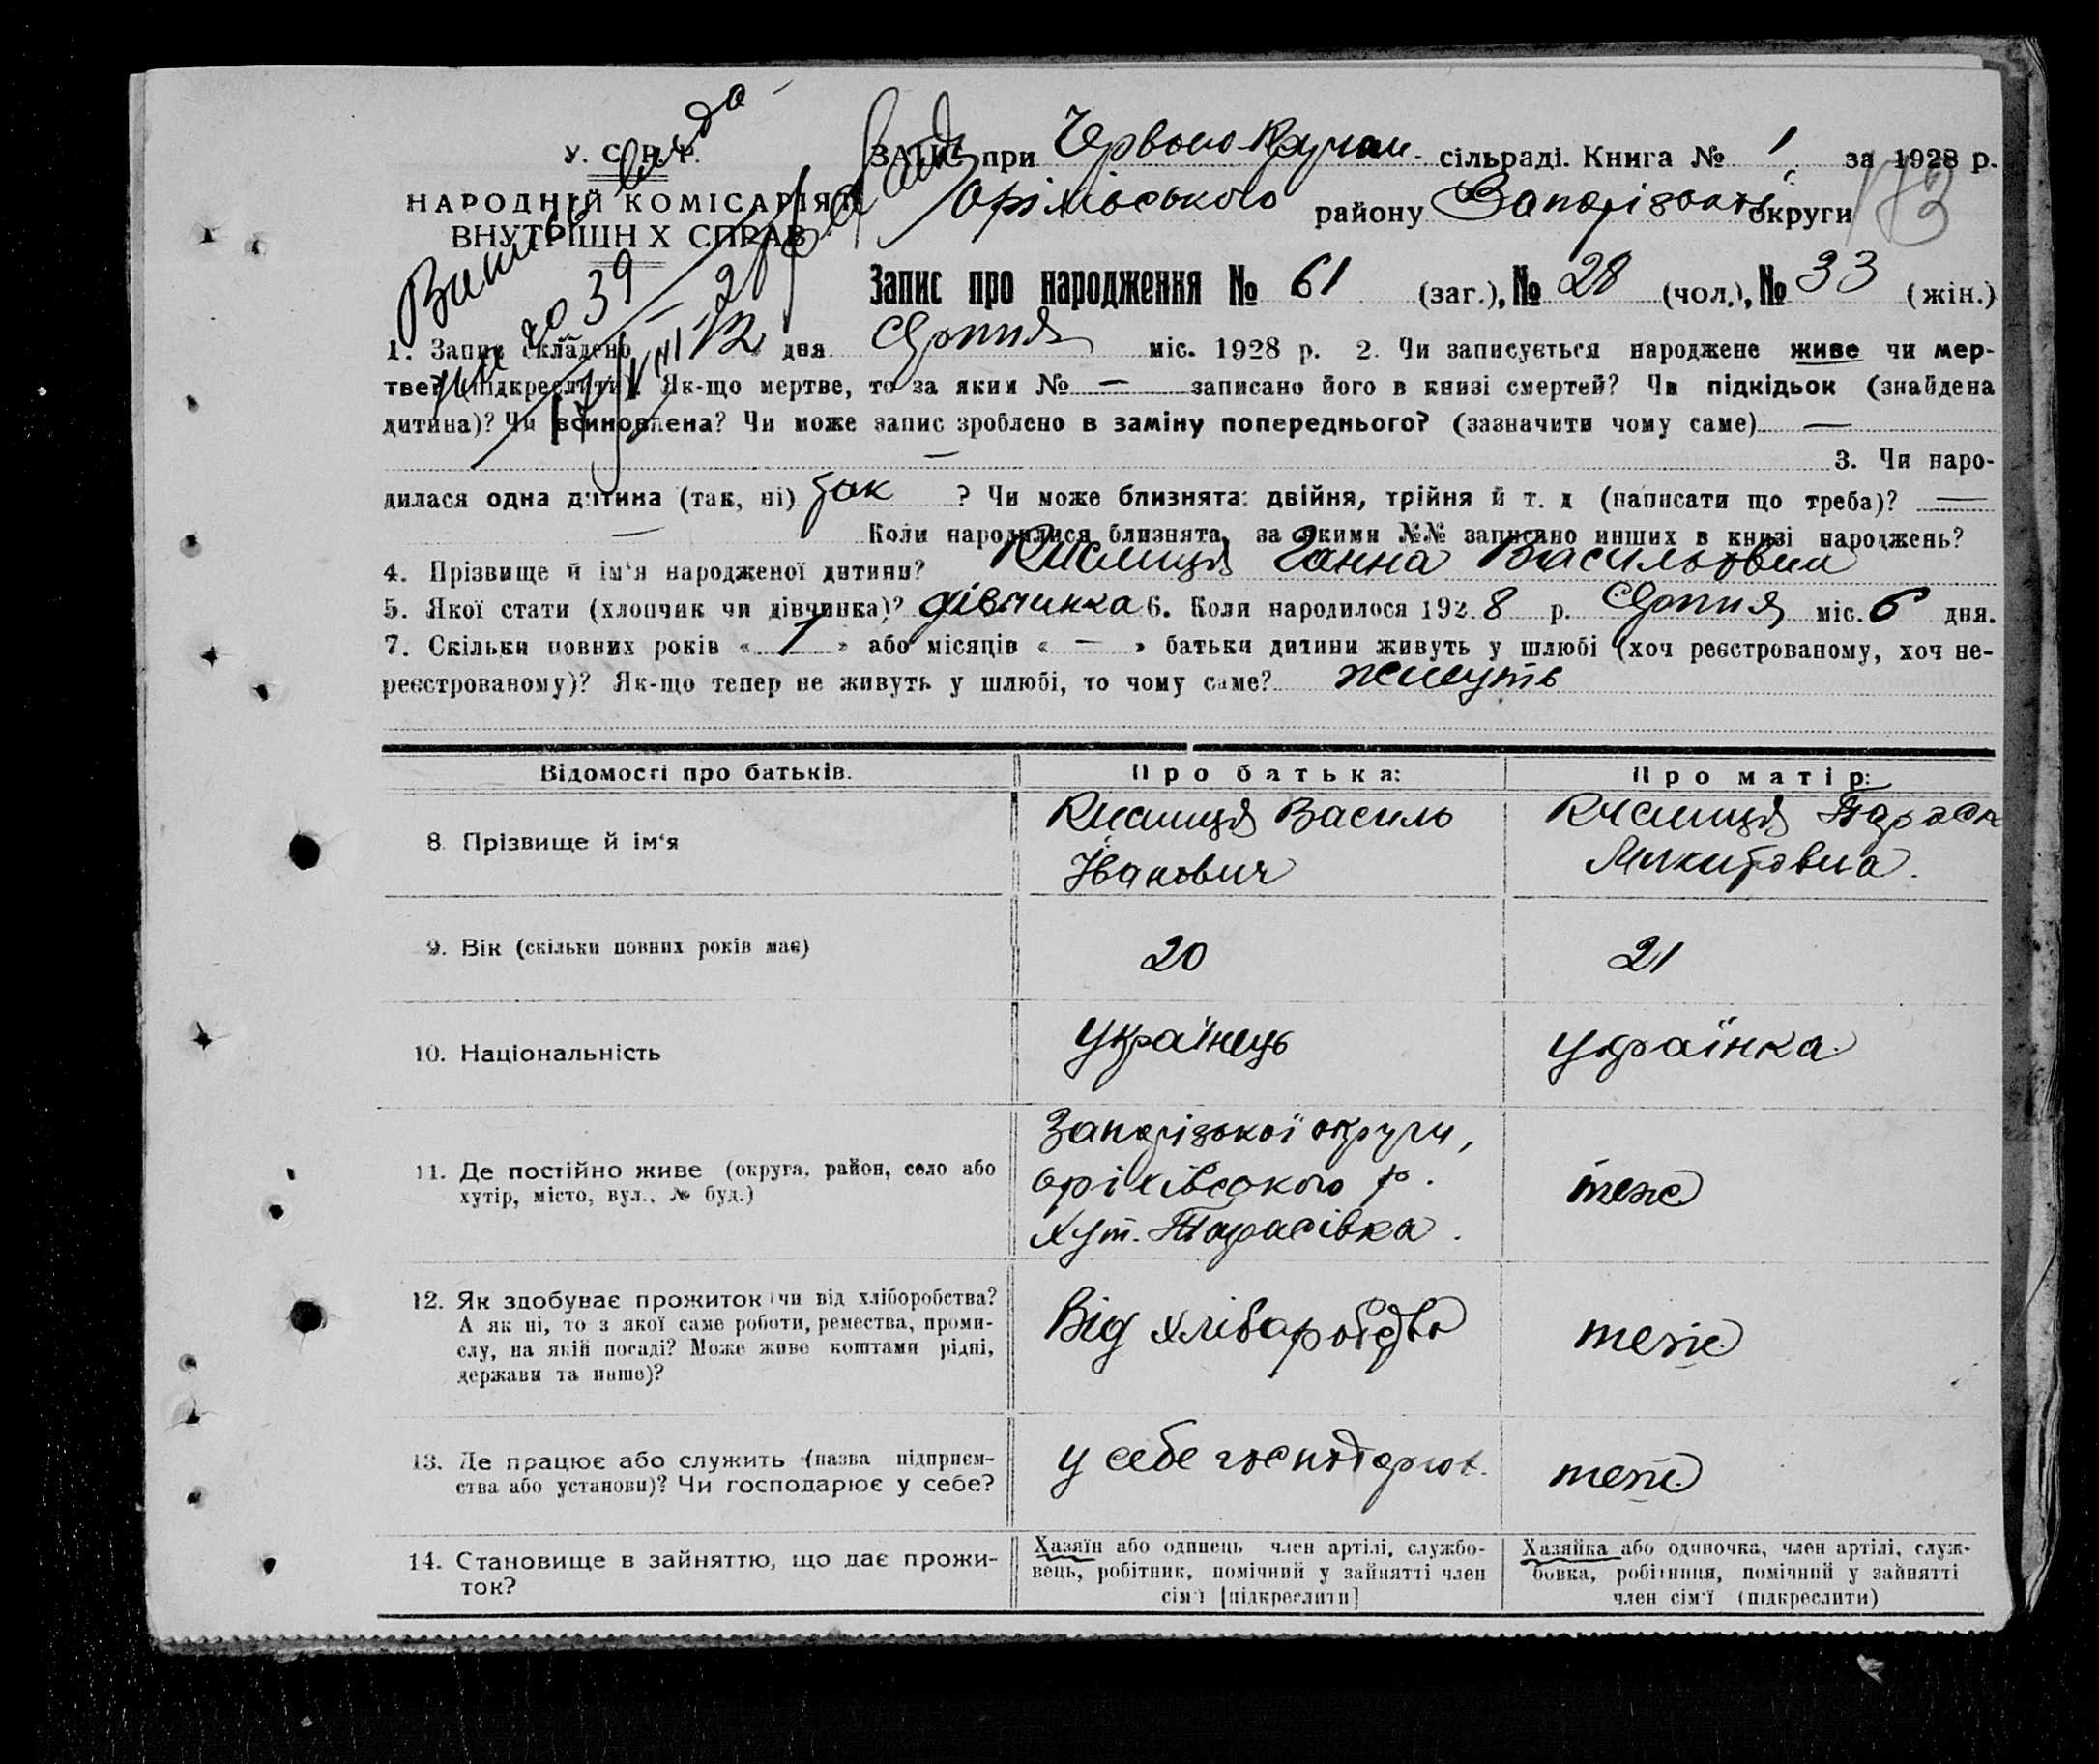 У. С. Р. Р.
НАРОДНІЙ КОМІСАРІЯТ
ВНУТРІШНІХ СПРАВ
ЗАГС при Червоно-Кручан. сільраді. Книга № 1 за 1928 р.
Оріхівського району Запорізької округи
Запис про народження № 61 (заг.), № 28 (чол.), № 33 (жін.)
1. Запис складено 12 дня Серпня міс. 1928 р. 2. Чи записується народжене живе чи мер-
тве? (підкреслити). Як-що мертве, то за яким № — записано його в книзі смертей? Чи підкідьок (знайдена
дитина)? Чи всиновлена? Чи може запис зроблено в заміну попереднього? (зазначити чому саме) —
— 3. Чи наро-
дилася одна дитина (так, ні) так ? Чи може близнята: двійня, трійня й т. д (написати що треба)? —
— Коли народилися близнята, за якими №№ записано инших в книзі народжень?
4. Прізвище й ім‘я народженої дитини? Кислиця Ганна Васильовна
5. Якої стати (хлопчик чи дівчинка)? дівчинка 6. Коли народилося 1928 р. Серпня міс. 6 дня.
7. Скільки повних років « 1 » або місяців « — » батьки дитини живуть у шлюбі (хоч реєстрованому, хоч не-
реєстрованому)? Як-що тепер не живуть у шлюбі, то чому саме? живуть
Відомості про батьків. Про батька: Про матір:
8. Прізвище й ім‘я Кислиця Василь Кислиця Параск
Іванович Микитовна.
9. Вік (скільки повних років має) 20 21
10. Національність Українець Українка
11. Де постійно живе (округа, район, село або
хутір, місто, вул., № буд.)
Запорізької округи,
Оріхівського р.
Хут. Тарасівка.
теж
12. Як здобуває прожиток (чи від хліборобства?
А як ні, то з якої саме роботи, ремества, проми-
слу, на якій посаді? Може живе коштами рідні,
держави та инше)?
Від хліборобства
теж
13. Де працює або служить (назва підприєм-
ства або установи)? Чи господарює у себе?
у себе господарює.
теж
14. Становище в зайняттю, що дає прожи-
ток?
Хазяїн або одинець член артілі, службо-
вець, робітник, помічний у зайнятті член
сім‘ї [підкреслити]
Хазяйка або одиночка, член артілі, служ-
бовка, робітниця, помічний у зайнятті
член сім‘ї (підкреслити)